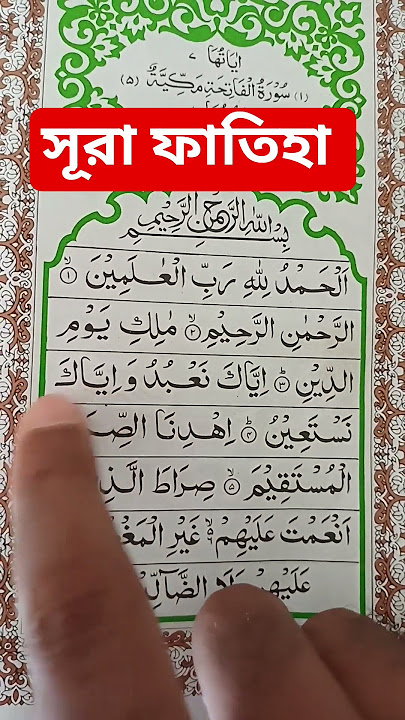 اٰيَاتُهَا ٧
(١) سُوْرَةُ الْفَاتِحَةِ مَكِّيَّةٌ (٥)
সূরা ফাতিহা
بِسْمِ اللّٰهِ الرَّحْمٰنِ الرَّحِيْمِ
اَلْحَمْدُ لِلّٰهِ رَبِّ الْعٰلَمِيْنَ ١
الرَّحْمٰنِ الرَّحِيْمِ ٢ مٰلِكِ يَوْمِ
الدِّيْنِ ٣ اِيَّاكَ نَعْبُدُ وَ اِيَّاكَ
نَسْتَعِيْنُ ٤ اِهْدِنَا
الْمُسْتَقِيْمَ ٥ صِرَاطَ
اَنْعَمْتَ عَلَيْهِمْ ٦ غَيْرِ